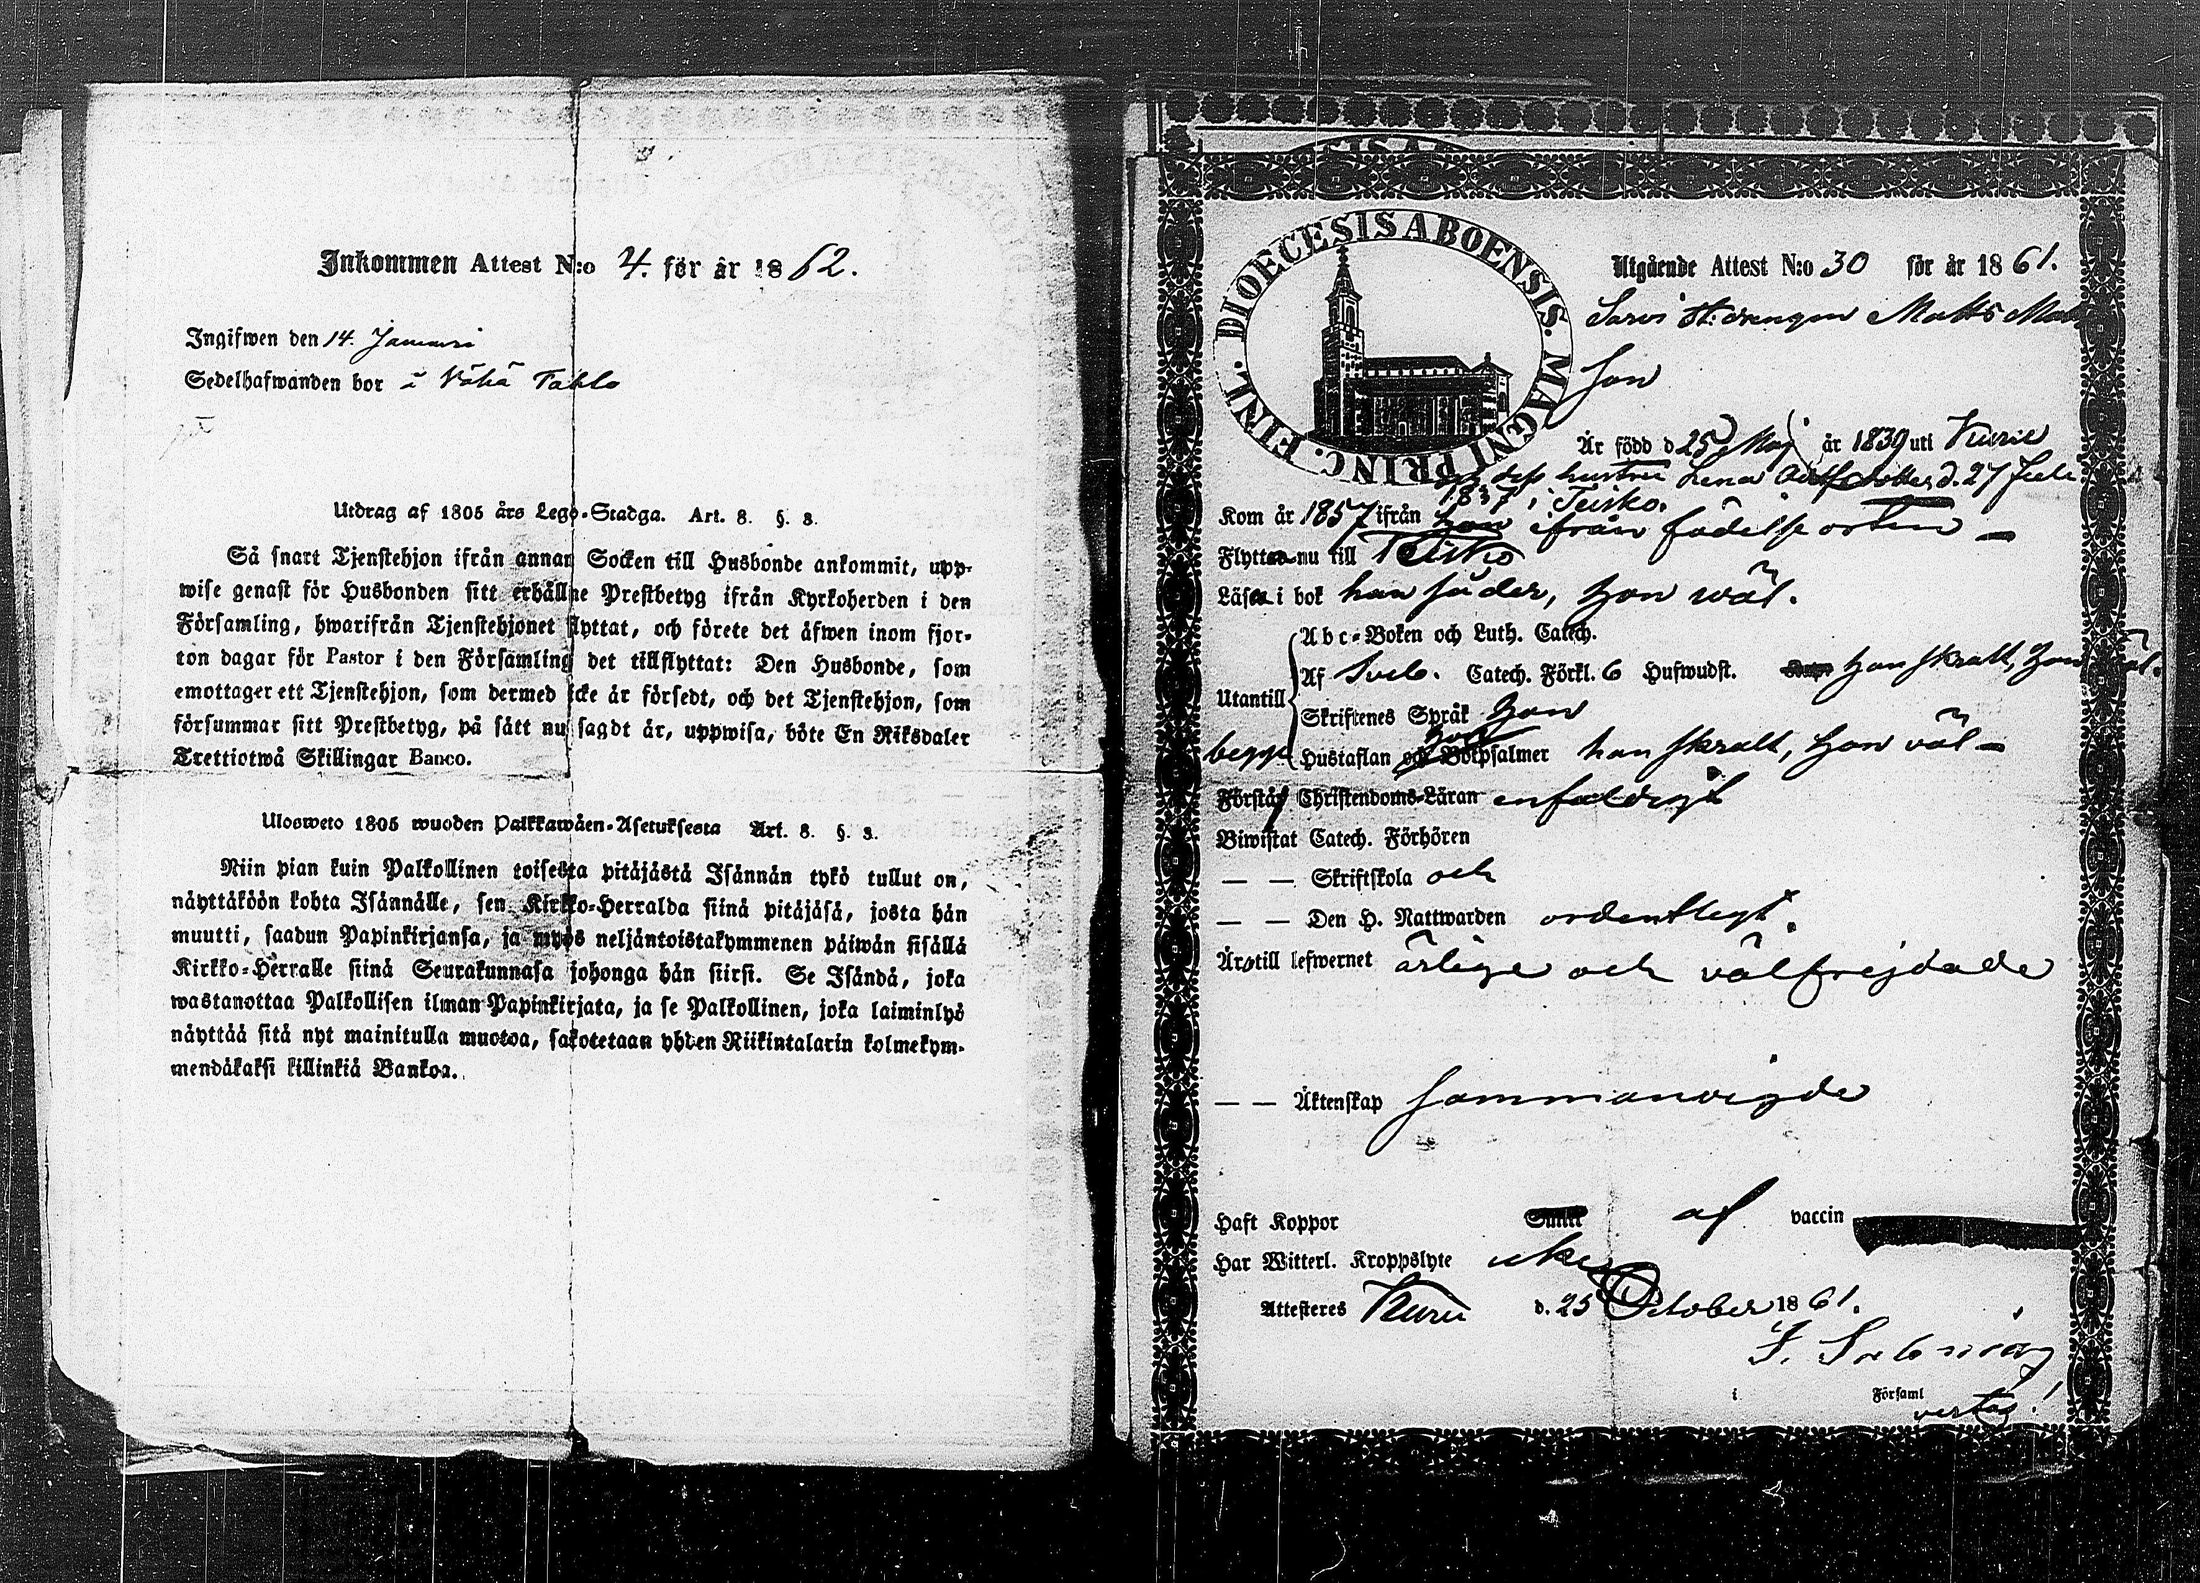 Inkommen Attest N:o 4. för år 1862.
Ingifwen den 14. Januari
Sedelhafwanden bor i Vähä Pahlo
Utdrag af 1805 års Lego-Stadga. Art. 8. §. 8.
Så snart Tjenstehjon ifrån annan Socken till Husbonde ankommit, upp-
wise genast för Husbonden sitt erhållne Prestbetyg ifrån Kyrkoherden i den
Församling, hwarifrån Tjenstehjonet flyttat, och förete det äfwen inom fjor-
ton dagar för Pastor i den Församling det tillflyttat: Den Husbonde, som
emottager ett Tjenstehjon, som dermed icke är försedt, och det Tjenstehjon, som
försummar sitt Prestbetyg, på sätt nu sagdt är, uppwisa, böte En Riksdaler
Trettiotwå Skillingar Banco.
Ulosweto 1805 wuoden Palkkawäen-Asetuksesta Art. 8. §. 8.
Niin pian kuin Palkollinen toisesta pitäjästä Isännän tykö tullut on,
näyttäköön kohta Isännälle, sen Kirkko-Herralda siinä pitäjäsä, josta hän
muutti, saadun Papinkirjansa, ja myös neljäntoistakymmenen päiwän sisällä
Kirkko-Herralle siinä Seurakunnasa johonga hän siirsi. Se Isändä, joka
wastanottaa Palkollisen ilman Papinkirjata, ja se Palkollinen, joka laiminlyö
näyttää sitä nyt mainitulla muotoa, sakotetaan yhden Riikintalarin kolmekym-
mendäkaksi killinkiä Bankoa.
DIOECESIS ABOENSIS. MAGNI PRINC. FINL.
Utgående Attest N:o 30 för år 1861.
drengen Matts Matts
son
Är född d 25 Maj år 1839 uti Kuru
dess hustru Lena d. 27 Julii
1837 i Teisko.
Kom år 1857 ifrån hon ifrån födelse orten
Flytta nu till Teisko
Läsa i bok han söder, hon wäl.
Abc-Boken och Luth. Catech.
Af Sveb. Catech. Förkl. 6 Hufwudst. han skralt, hon wäl.
Utantill
Skriftenes Språk hon
begge Hustaflan och Botpsalmer han skralt, hon väl
Förstå Christendoms-Läran enfaldigt
Biwistat Catech. Förhören
— — Skriftskola och
— — Den H. Nattwarden ordentligt.
Äro till lefwernet ärlige och välfrejdade
— — Äktenskap sammanvigde
Haft Koppor af vaccin
Har Witterl. Kroppslyte icke
Attesteres Kuru d. 25 October 1861.
i Församl